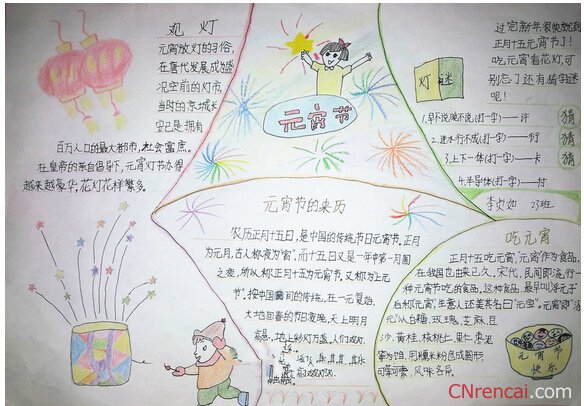 观 灯
元宵放灯的习俗,
在唐代发展成为盛
况空前的灯市,
当时的京城长
安已是拥有
百万人口的最大都市,社会富庶。
在皇帝的亲自倡导下,元宵灯节办得
越来越豪华,花灯花样繁多。
元宵节
灯谜
过完新年很快就到
正月十五元宵节了!
吃元宵看花灯,可
别忘了还有猜字谜
呢!
1.早不说晚不说(打一字)——许
2.进水行不成(打一字)——衍
3.上下一体(打一字)——卡
4.半导体(打一字)——付
猜
猜
23班
元宵节的来历
农历正月十五日,是中国的传统节日元宵节。正月
为元月,古人称夜为"宵",而十五日又是一年中第一月圆
之夜,所以称正月十五为元宵节。又称为上元
节",按中国的传统,在一元复始,
大地回春的节日夜晚,天上明月
高悬,地上彩灯万盏,人们观灯、
吃元宵
正月十五吃元宵,"元宵"作为食品,
在我国也由来已久,宋代,民间即流行一
种元宵节吃的食品,这种食品,最早叫"浮元子"
后称"元宵",生意人还美其名曰"元宝"。元宵即"汤
元"以白糖、玫瑰、芝麻、豆
沙、黄桂、核桃仁、果仁、枣泥
等为馅,用糯米粉包成圆形,
可荤可素,风味各异。
元宵节
快乐
CNrencai.com